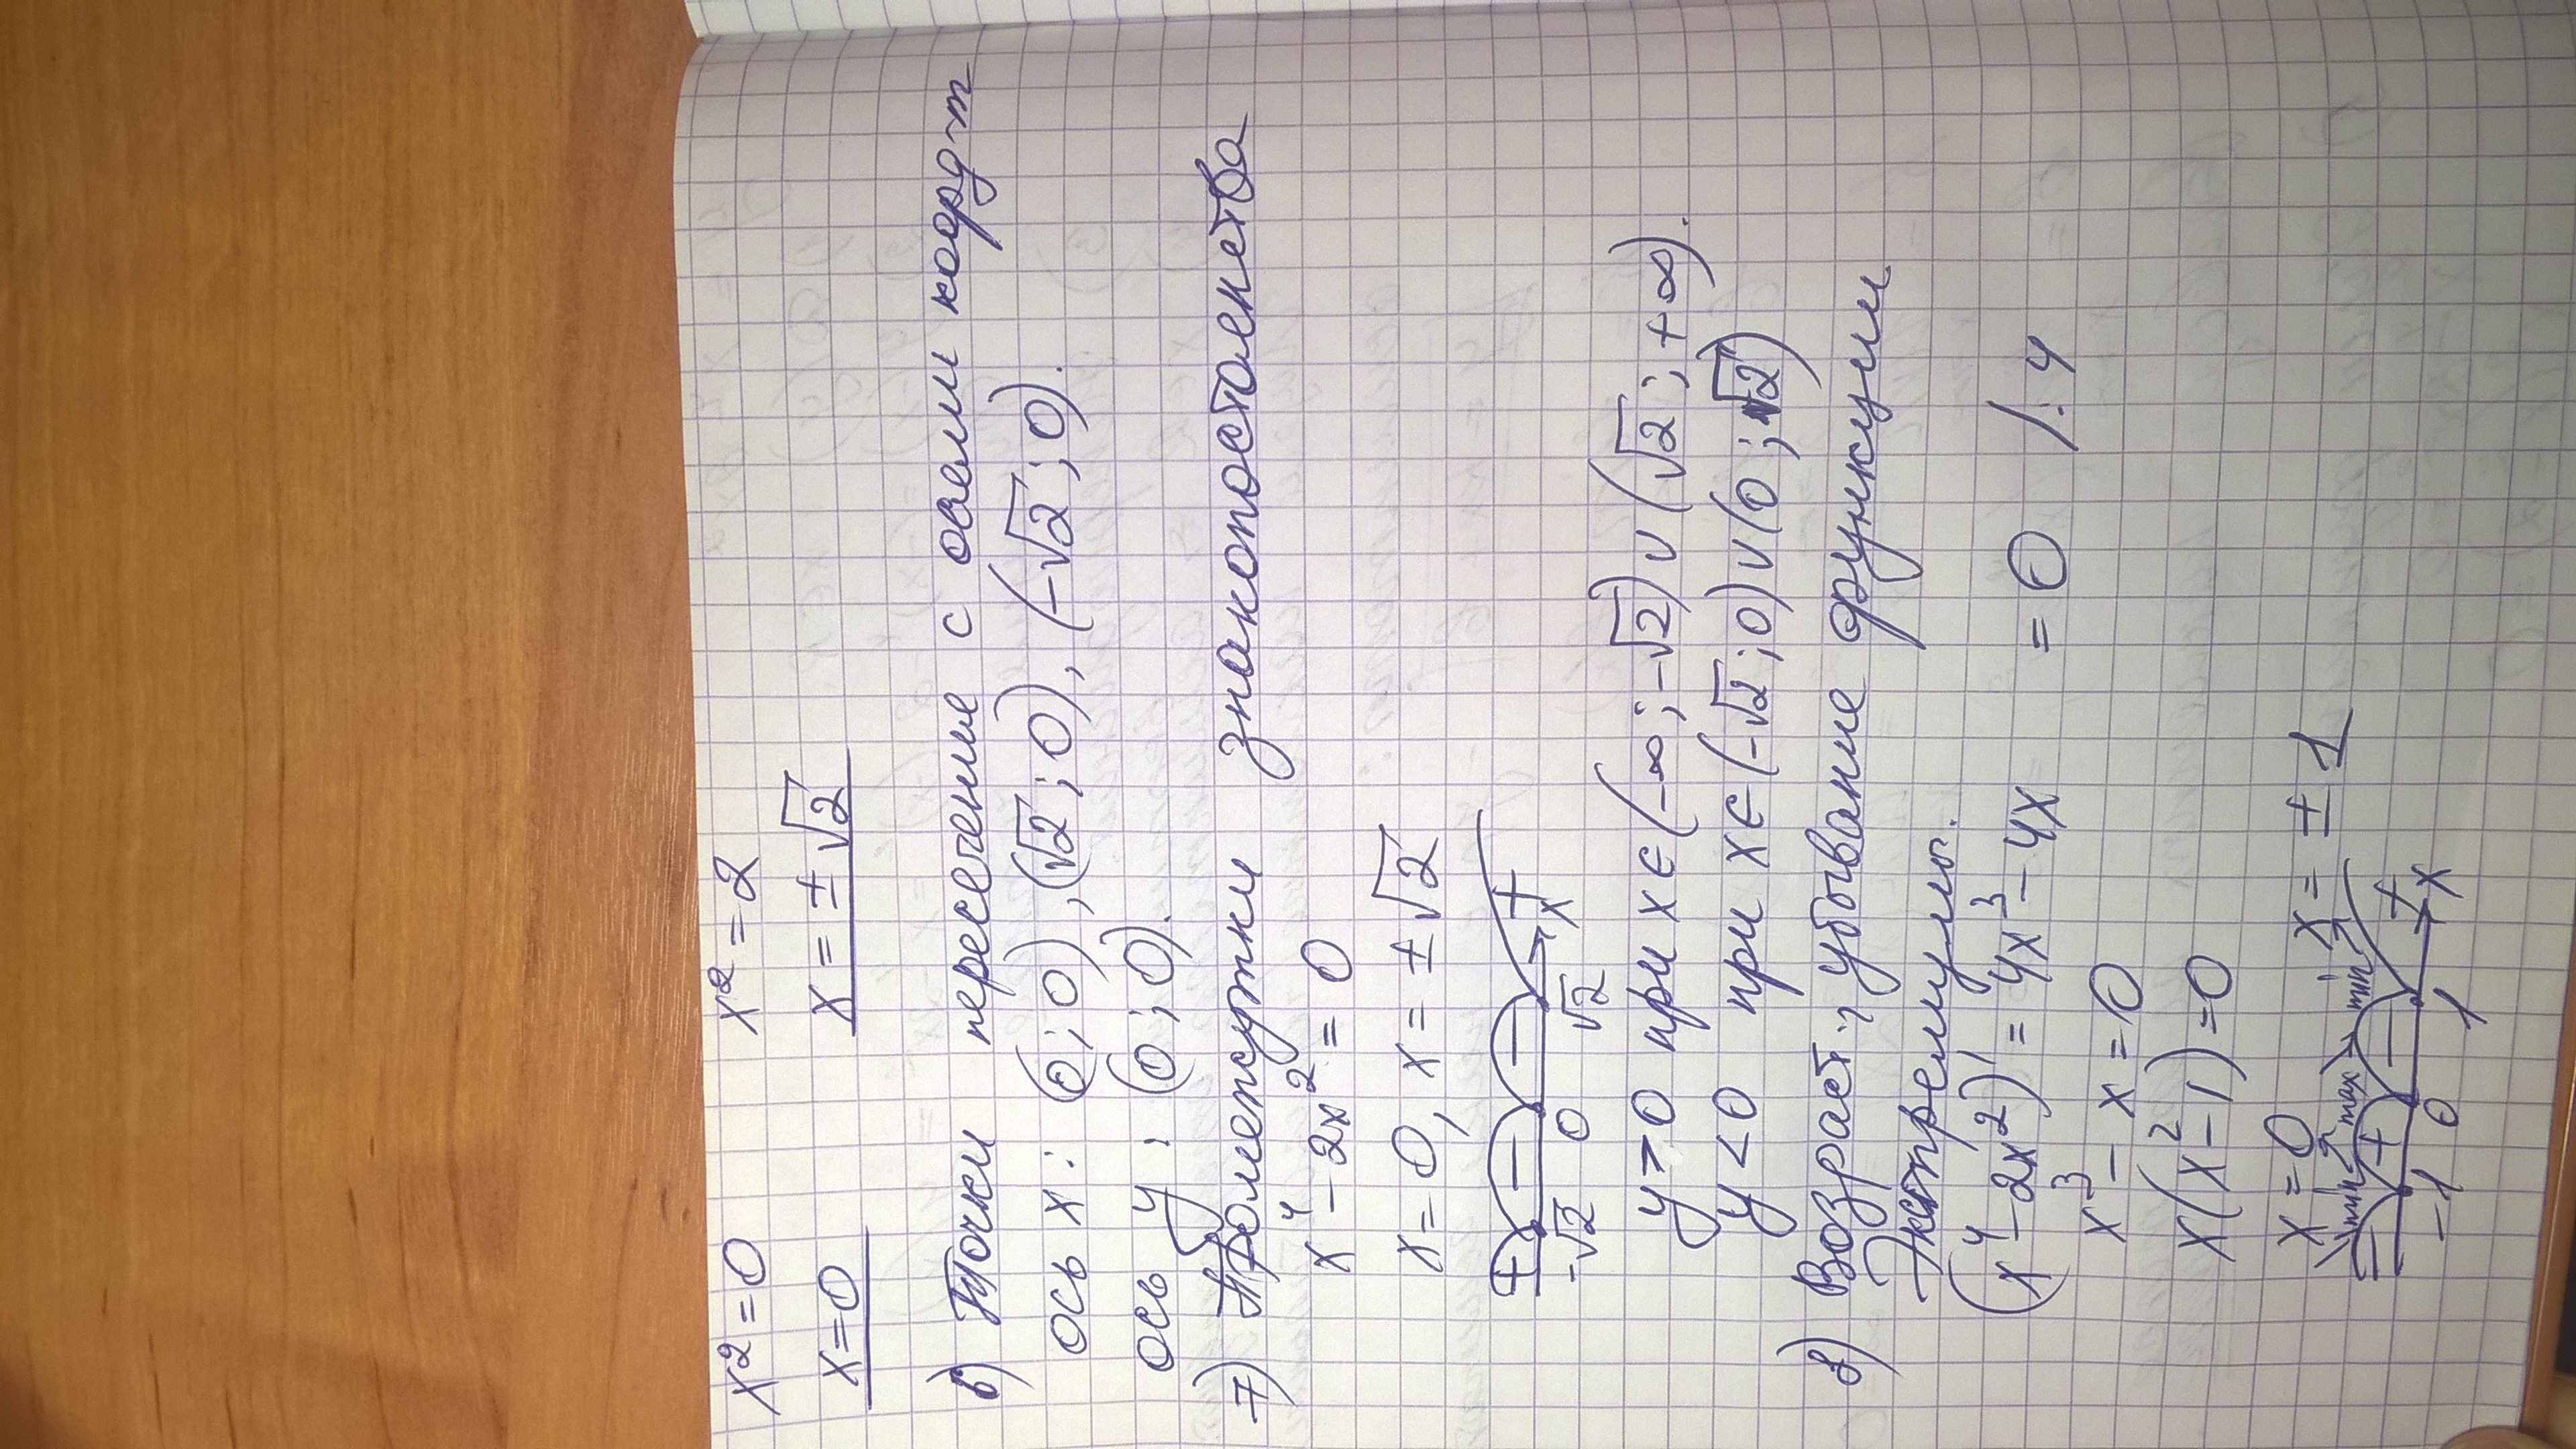 x² = 0 x² = 2
x = 0 x = ± √2
6) Точки пересечение с осами коорд-т
ось x: (0; 0), (√2; 0), (-√2; 0).
ось y: (0; 0).
7) Промежутки знакопостоянства
x⁴ - 2x² = 0
x = 0, x = ± √2
+ - - +
-√2 0 √2 x
y > 0 при x ∈ (-∞; -√2) ∪ (√2; +∞).
y < 0 при x ∈ (-√2; 0) ∪ (0; √2)
8) Возраст. и убывание функции
Экстремумы.
(x⁴ - 2x²)' = 4x³ - 4x = 0 /: 4
x³ - x = 0
x(x² - 1) = 0
x = 0 x = ± 1
min max min
- + - +
-1 0 1 x